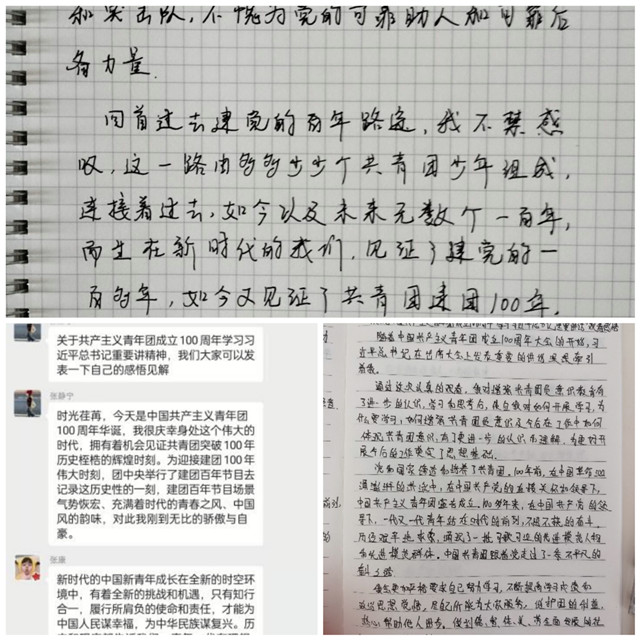 和突击队，不愧为党的可靠助人和可靠后
备力量.
回首过去建党的百年路途，我不禁感
叹，这一路由多多少少个共青团少年组成，
连接着过去，如今以及未来无数个一百年，
而生在新时代的我们，见证了建党的一
百多年，如今又见证了共青团建团100年，
关于共产主义青年团成立100周年学习习
近平总书记重要讲精神，我们大家可以发
表一下自己的感悟见解
张静宁
时光荏苒，今天是中国共产主义青年团
100周年华诞，我很庆幸身处这个伟大的
时代，拥有着机会见证共青团突破100年
历史桎梏的辉煌时刻。为迎接建团100年
伟大时刻，团中央举行了建团百年节目去
记录这历史性的一刻，建团百年节目场景
气势恢宏、充满着时代的青春之风、中国
风的韵味，对此我刚到无比的骄傲与自
豪。
张康
新时代的中国新青年成长在全新的时空环
境中，有着全新的挑战和机遇，只有知行
合一，履行所肩负的使命和责任，才能为
中国人民谋幸福，为中华民族谋复兴。历
随着中国共产主义青年团成立100周年大会的开始，习
近平总书记在
着我。
通过这次认真的观看，我对增强共青团员意识教育有
了进一步的认识，学习和思考后，使自我对如何开展学习，为
什么要学习，如何增强共青团员意识及今后在工作中如何
体现共青团意识，有了更进一步的认识和理解，为更好开
展今后的工作奠定了思想基础。
党和国家缔造和培养了共青团，100年前，在中国
在中国共产党的直接关怀和领导下，
中国共产主义青年团宣告成立。100多年来，在中国共产党的领
导下，一代又一代青年站在时代的前列，不屈不挠的奋斗，
中国共青团跟着党走过了一条不平凡的